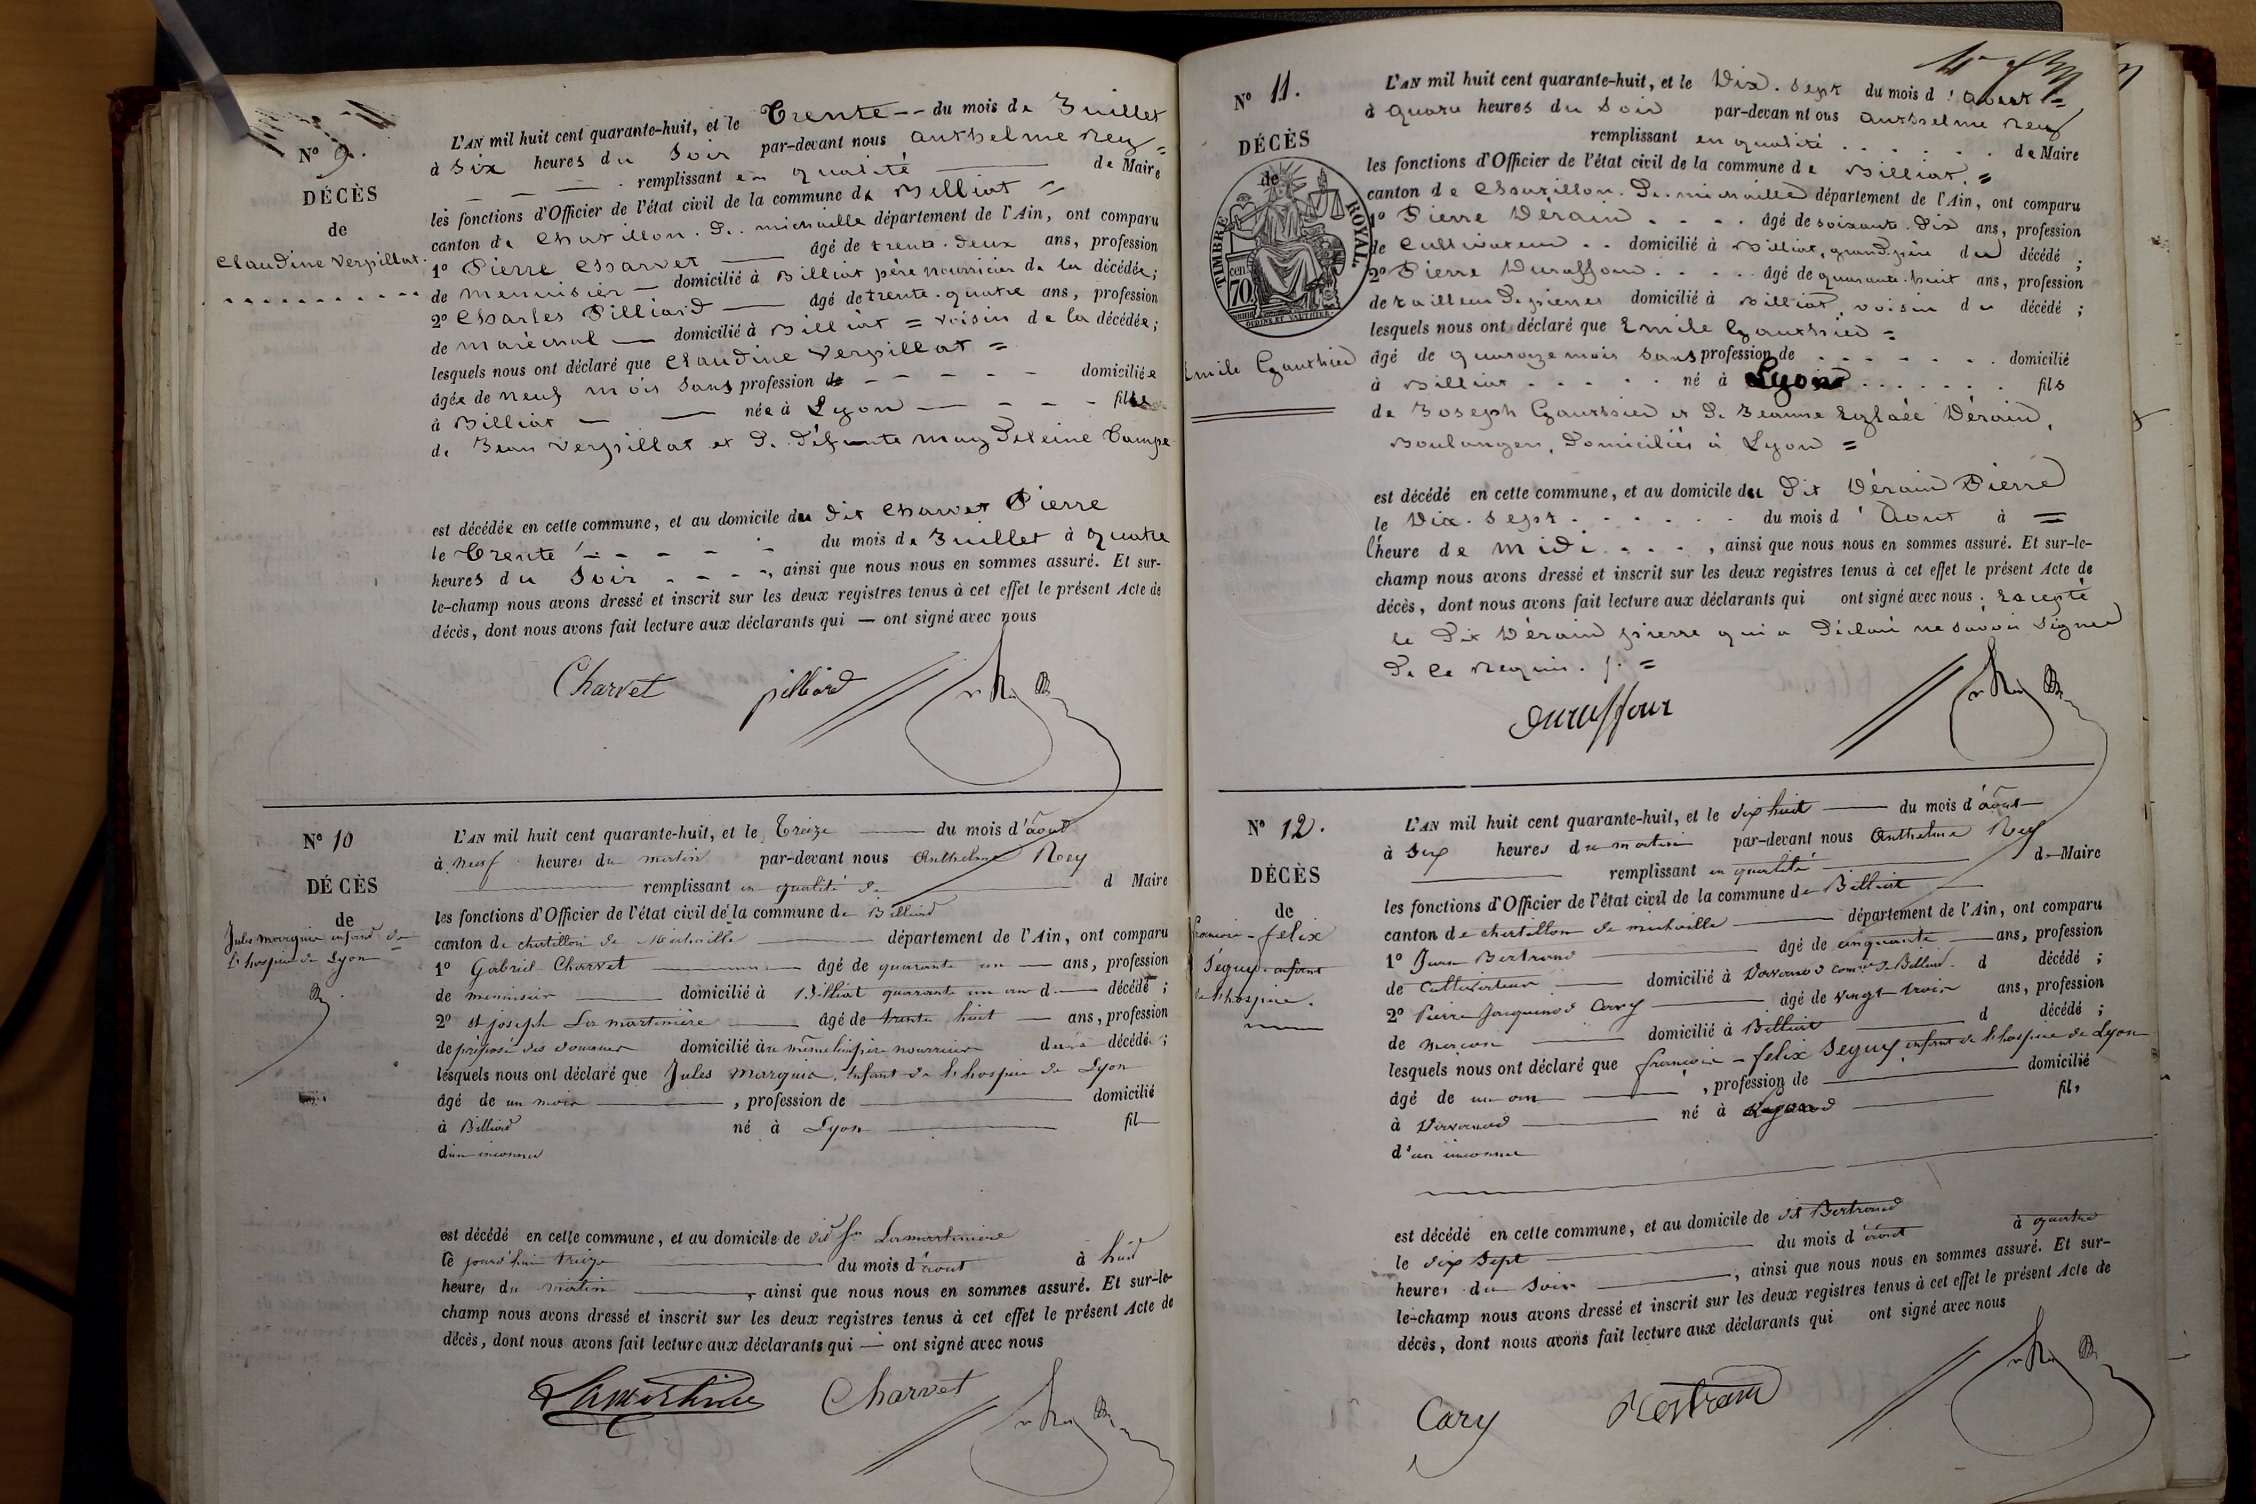 N° 9.
DÉCÈS
de
Claudine Verpillat.
L'AN mil huit cent quarante-huit, et le Trente -- du mois de Juillet
à Six heures du Soir par-devant nous Anthelme Rey =
remplissant en qualité de Maire
les fonctions d'Officier de l'état civil de la commune de Billiat =
canton de Chatillon. De. michaille département de l'Ain, ont comparu
1° Pierre Charvet âgé de trente. deux ans, profession
de Menuisier domicilié à Billiat père nourricier de la décédée;
2° Charles Pilliard âgé de trente. quatre ans, profession
de Maréchal domicilié à Billiat = voisin de la décédée;
lesquels nous ont déclaré que Claudine Verpillat =
âgée de neuf mois Sans profession de - - - - - domiciliée
à Billiat née à Lyon - - - fille
de Jean Verpillat et De. Défunte Magdeleine
est décédée en cette commune, et au domicile du Dit Charvet Pierre
le Trente - - - - du mois de Juillet à quatre
heures du Soir - - - -, ainsi que nous nous en sommes assuré. Et sur-
le-champ nous avons dressé et inscrit sur les deux registres tenus à cet effet le présent Acte de
décès, dont nous avons fait lecture aux déclarants qui — ont signé avec nous
Charvet pilliard
N° 10
DÉCÈS
de
Jules marquis enfant de
l'hospice de Lyon
L'AN mil huit cent quarante-huit, et le Treize du mois d'août
à neuf heures du matin par-devant nous Anthelme Rey
remplissant en qualité de d Maire
les fonctions d'Officier de l'état civil de la commune de Billiad
canton de chatillon de Michaille département de l'Ain, ont comparu
1° Gabriel Charvet âgé de quarante un ans, profession
de menuisier domicilié à Billiat quarante un an d décédé ;
2° st joseph La martinière âgé de trente huit ans, profession
de préposé des douanes domicilié au même lieu père nourricier du décédé ;
lesquels nous ont déclaré que Jules marquis, Enfant de l'hospice de Lyon
âgé de un mois , profession de domicilié
à Billiad né à Lyon fil
d'un inconnu
est décédé en cette commune, et au domicile de dit Lamartinière
le jourd'hui treize du mois d'aout à huit
heures du matin , ainsi que nous nous en sommes assuré. Et sur-le-
champ nous avons dressé et inscrit sur les deux registres tenus à cet effet le présent Acte de
décès, dont nous avons fait lecture aux déclarants qui — ont signé avec nous
Lamartinière Charvet
N° 11.
DÉCÈS
de
TIMBRE ROYAL.
70
Emile Gauthier
L'AN mil huit cent quarante-huit, et le Dix. Sept du mois d'Aout =
à quatre heures du Soir par-devant nous Anthelme Rey
remplissant en qualité . . . . . . de Maire
les fonctions d'Officier de l'état civil de la commune de Billiat. =
canton de Chatillon. De. michaille département de l'Ain, ont comparu
1° Pierre Dérain . . . . âgé de soixante. Dix ans, profession
de Cultivateur . . domicilié à Billiat, grand père du décédé ;
2° Pierre Duraffour . . . . . âgé de quarante. huit ans, profession
de tailleur De pierres domicilié à Billiat, voisin du décédé ;
lesquels nous ont déclaré que Emile Gauthier =
âgé de quatorze mois Sans profession de . . . . . . . domicilié
à Billiat . . . . . né à Lyon . . . . . . . fils
de Joseph Gauthier et De Jeanne Eglaée Dérain,
Boulangers, Domiciliés à Lyon =
est décédé en cette commune, et au domicile du Dit Dérain Pierre
le Dix. Sept . . . . . . du mois d'Aout à =
l'heure de midi . . . . , ainsi que nous nous en sommes assuré. Et sur-le-
champ nous avons dressé et inscrit sur les deux registres tenus à cet effet le présent Acte de
décès, dont nous avons fait lecture aux déclarants qui ont signé avec nous . Excepté
le Dit Dérain pierre qui a Déclaré ne savoir Signer
De ce Requis. =
Duraffour
N° 12.
DÉCÈS
de
francois - felix
Séguy. enfant
de l'hospice.
L'AN mil huit cent quarante-huit, et le dix huit du mois d'août
à Six heures du matin par-devant nous Anthelme Rey
remplissant en qualité de Maire
les fonctions d'Officier de l'état civil de la commune de Billiat
canton de chatillon de michaille département de l'Ain, ont comparu
1° Jean Bertrand âgé de cinquante ans, profession
de Cultivateur domicilié à d décédé ;
2° Pierre Jacquinod Cary âgé de vingt trois ans, profession
de macon domicilié à Billiat d décédé ;
lesquels nous ont déclaré que francois - felix Seguy enfant de l'hospice de Lyon
âgé de un an , profession de domicilié
à né à fils
d'un inconnu
est décédé en cette commune, et au domicile de dit Bertrand
le dix Sept du mois d'aout à quatre
heures du Soir , ainsi que nous nous en sommes assuré. Et sur-
le-champ nous avons dressé et inscrit sur les deux registres tenus à cet effet le présent Acte de
décès, dont nous avons fait lecture aux déclarants qui ont signé avec nous
Cary Bertrand